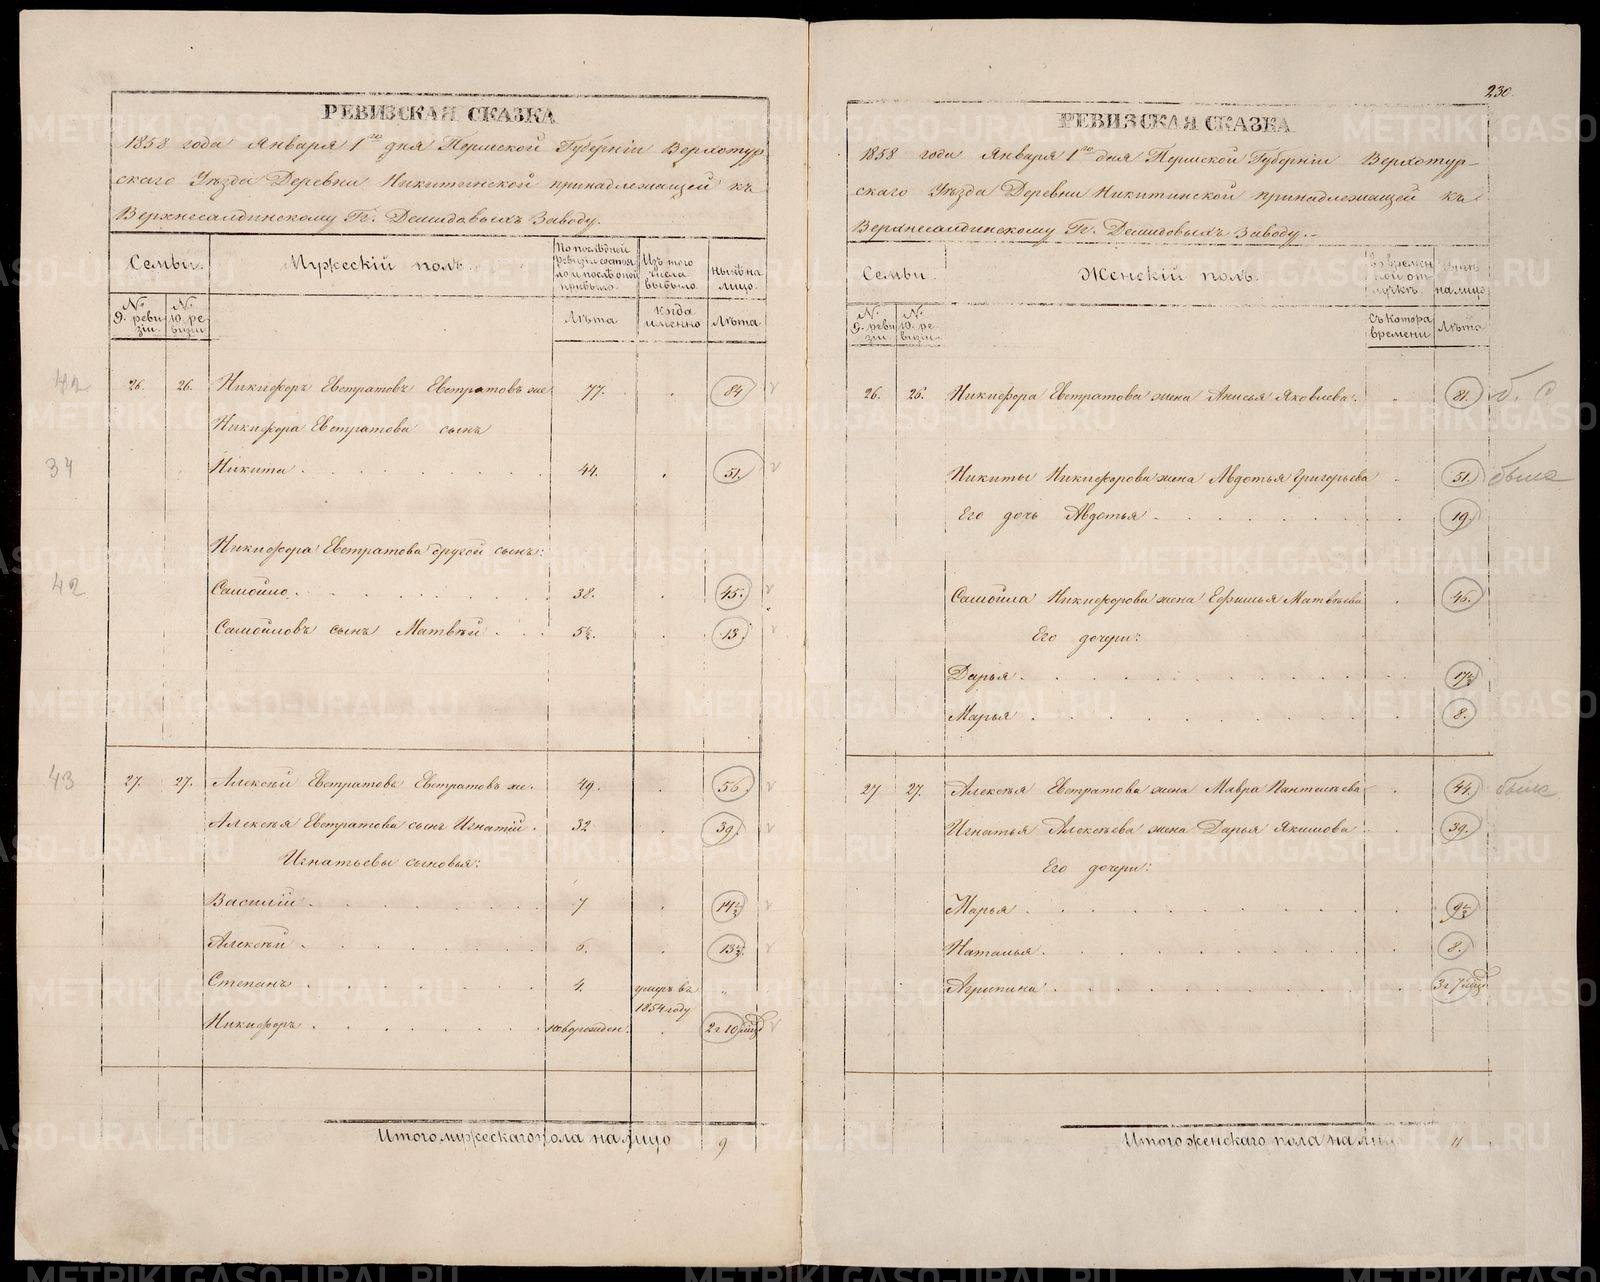 РЕВИЗСКАЯ СКАЗКА
1858 года Января 1го дня Пермской Губерніи Верхотур-
скаго Уѣзда Деревни Никитинской принадлежащей къ
Верхнесалдинскому Гг. Демидовыхъ Заводу.
Семьи.
Мужескій полъ.
По послѣдней ревизіи состояло и послѣ оной прибыло.
Изъ того числа выбыло.
Нынѣ на лицо.
№ 9. ревизіи.
№ 10. ревизіи
Лѣта
Когда именно
Лѣта
42 26. 26. Никифоръ Евстратовъ Евстратовъ же 77. 84
Никифора Евстратова сынъ
34 Никита 44. 51.
Никифора Евстратова другой сынъ:
42 Самойло. 38. 45.
Самойловъ сынъ Матвѣй 5½. 13.
43 27. 27. Алексѣй Евстратовъ Евстратовъ же. 49. 56.
Алексѣя Евстратова сынъ Игнатій. 32 39.
Игнатьевы сыновья:
Василій 7 14½
Алексѣй 6. 13½.
Степанъ 4. умеръ въ 1854 году "
Никифоръ новорожден. 2 г. 10 мцъ
Итого мужескаго пола на лицо 9
230.
РЕВИЗСКАЯ СКАЗКА
1858 года Января 1го дня Пермской Губерніи Верхотур-
скаго Уѣзда Деревни Никитинской принадлежащей къ
Верхнесалдинскому Гг. Демидовыхъ Заводу.
Семьи.
Женскій полъ.
Во временной отлучкѣ.
Нынѣ на лицо
№ 9. ревизіи
№ 10. ревизіи
Съ котора времени
Лѣта
26. 26. Никифора Евстратова жена Анисья Яковлева. 81. б. С
Никиты Никифорова жена Авдотья Григорьева 51. была
Его дочь Авдотья 19.
Самойла Никифорова жена Ефимья Матвѣева 46.
Его дочери:
Дарья 17½
Марья 8.
27 27. Алексѣя Евстратова жена Мавра Пантелѣева 44. была
Игнатья Алексѣева жена Дарья Якимова 39.
Его дочери:
Марья 9½
Наталья 8.
Агрипина 3 г. 7 мцъ
Итого женскаго пола на лицо 11
METRIKI.GASO-URAL.RU